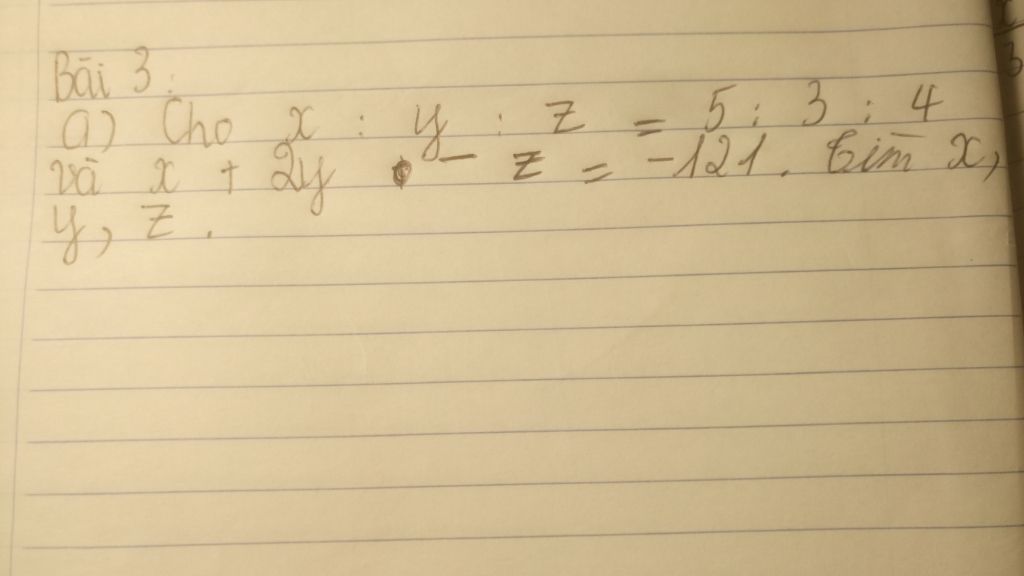 Bài 3:
a) Cho x : y : z = 5 : 3 : 4
và x + 2y - z = -121. Tìm x,
y, z.